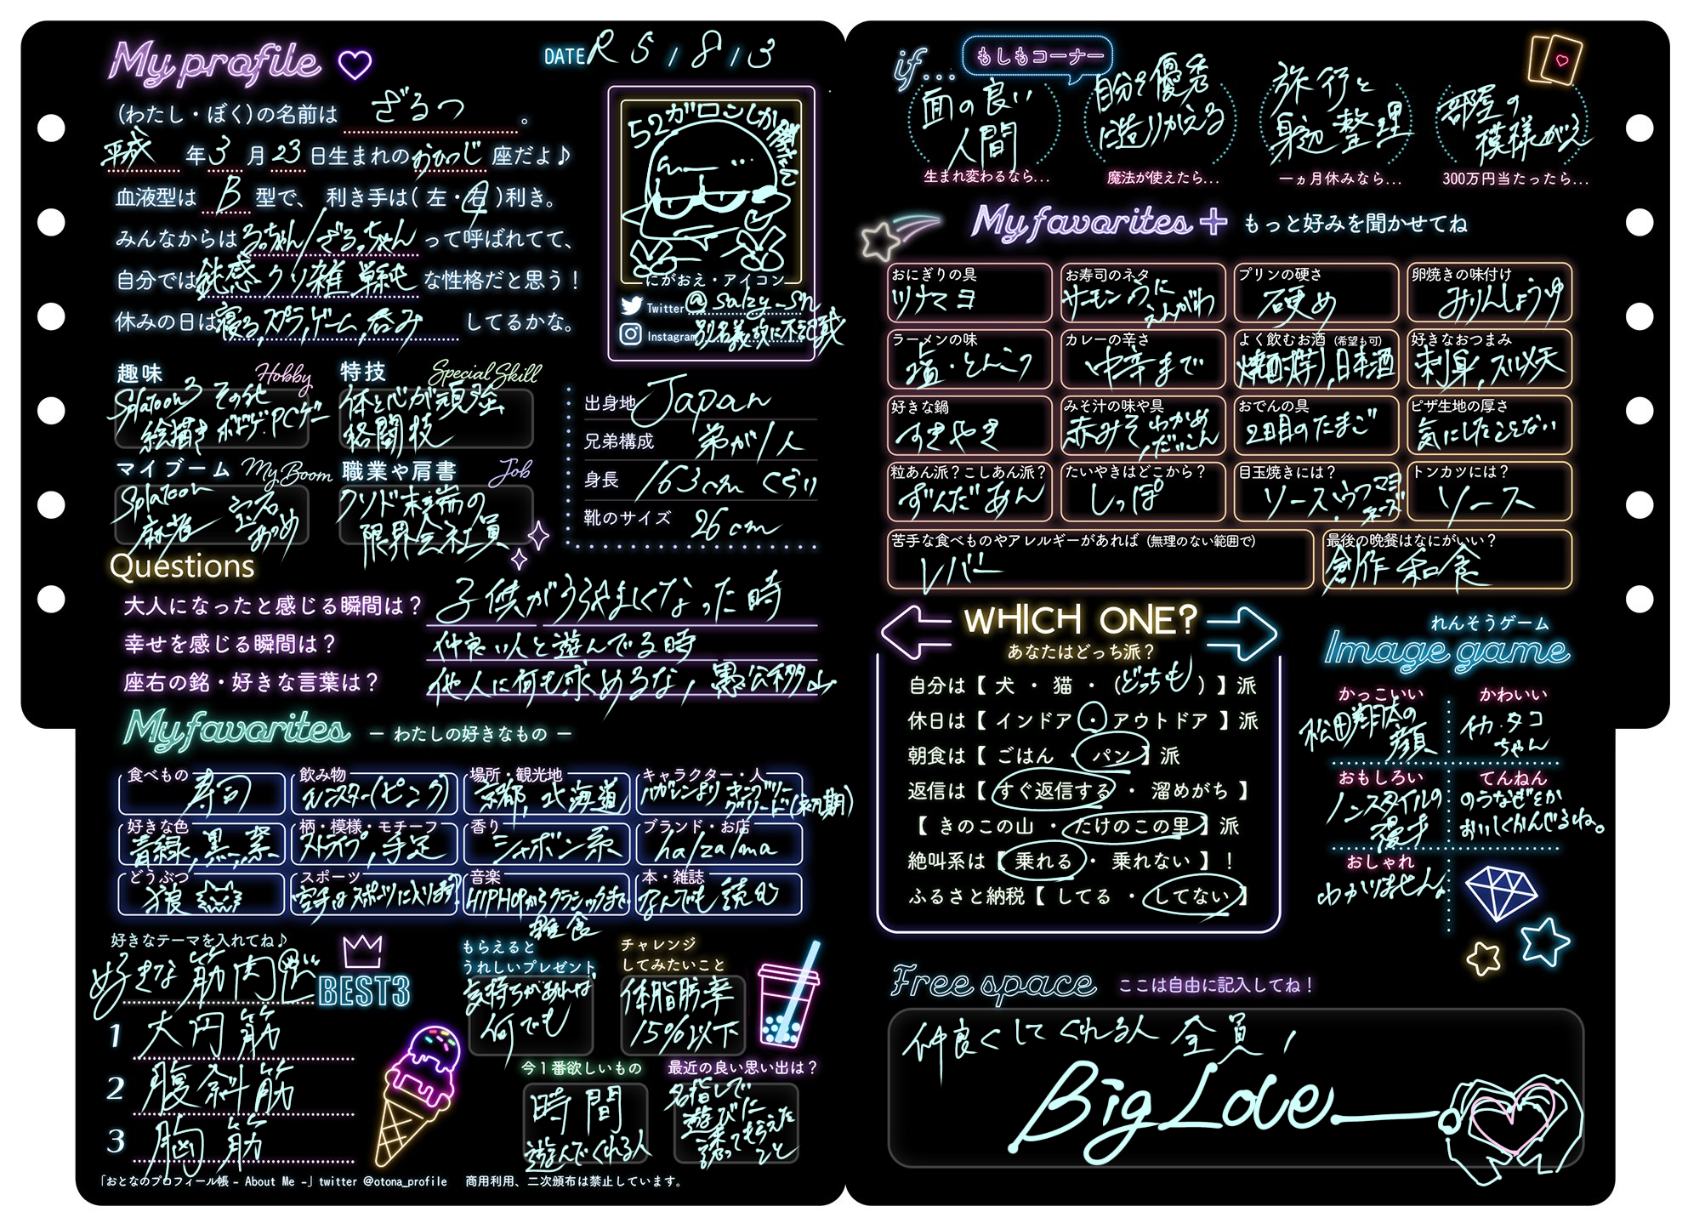 My profile
DATE R 5 / 8 / 3
(わたし・ぼく)の名前は ざるつ 。
平成 年 3 月 23 日生まれの おひつじ 座だよ♪
血液型は B 型で、 利き手は( 左・右 )利き。
みんなからは るっちゃん/ざるっちゃん って呼ばれてて、
自分では 鈍感 クソ雑 単純 な性格だと思う！
休みの日は 寝る,スプラ,ゲーム,呑み してるかな。
52ガロンしか勝たん
にがおえ・アイコン
Twitter @salzy_sh
Instagram 別名義故に不記載
趣味 Hobby
Splatoon3 その他
絵描き ボドゲ・PCゲー
特技 Special Skill
体と心が頑強
格闘技
マイブーム My Boom
Splatoon
麻雀 宝石
あつめ
職業や肩書 Job
クソド末端の
限界会社員
出身地 Japan
兄弟構成 弟が1人
身長 163cm くらい
靴のサイズ 26cm
Questions
大人になったと感じる瞬間は？ 子供がうらやましくなった時
幸せを感じる瞬間は？ 仲良い人と遊んでる時
座右の銘・好きな言葉は？ 他人に何も求めるな, 愚公移山
My favorites － わたしの好きなもの －
食べもの 寿司
飲み物 モンスター(ピンク)
場所・観光地 京都,北海道
キャラクター・人 ハガレンより キングブリー グリード(初期)
好きな色 青緑,黒,紫
柄・模様・モチーフ ストライプ,手足
香り シャボン系
ブランド・お店 ha/za/ma
どうぶつ 狼
スポーツ 空手はスポーツに入りますか?
音楽 HIPHOPからクラシックまで
雑食
本・雑誌 なんでも読む
好きなテーマを入れてね♪
好きな筋肉 BEST3
1 大円筋
2 腹斜筋
3 胸筋
もらえると
うれしいプレゼント
気持ちがあれば
何でも
チャレンジ
してみたいこと
体脂肪率
15%以下
今１番欲しいもの
時間
遊んでくれる人
最近の良い思い出は？
名指しで
遊びに
誘ってもらえた
こと
「おとなのプロフィール帳 - About Me -」twitter @otona_profile 商用利用、二次頒布は禁止しています。
if... もしもコーナー
面の良い
人間
生まれ変わるなら...
自分を優秀
に造りかえる
魔法が使えたら...
旅行と
身辺整理
一ヵ月休みなら...
部屋の
模様がえ
300万円当たったら...
My favorites + もっと好みを聞かせてね
おにぎりの具 ツナマヨ
お寿司のネタ サーモン うに えんがわ
プリンの硬さ 硬め
卵焼きの味付け みりんしょうゆ
ラーメンの味 塩・とんこつ
カレーの辛さ 中辛まで
よく飲むお酒 (希望も可) 焼酎(芋),日本酒
好きなおつまみ 刺身,スルメ天
好きな鍋 すきやき
みそ汁の味や具 赤みそ わかめ,だいこん
おでんの具 2日目のたまご
ピザ生地の厚さ 気にしたことない
粒あん派？こしあん派？ ずんだあん
たいやきはどこから？ しっぽ
目玉焼きには？ ソース・
トンカツには？ ソース
苦手な食べものやアレルギーがあれば (無理のない範囲で) レバー
最後の晩餐はなにがいい？ 創作和食
WHICH ONE?
あなたはどっち派？
自分は【 犬 ・ 猫 ・ (どっちも) 】派
休日は【 インドア ・ アウトドア 】派
朝食は【 ごはん ・ パン 】派
返信は【 すぐ返信する ・ 溜めがち 】
【 きのこの山 ・ たけのこの里 】派
絶叫系は【 乗れる ・ 乗れない 】！
ふるさと納税【 してる ・ してない 】
れんそうゲーム
Image game
かっこいい
松田翔太の
顔
かわいい
イカ・タコ
ちゃん
おもしろい
ノンスタイルの
漫才
てんねん
のうなぜとか
おいしくかんじるね。
おしゃれ
わかりません。
Free space ここは自由に記入してね！
仲良くしてくれる人 全員 !
Big Love